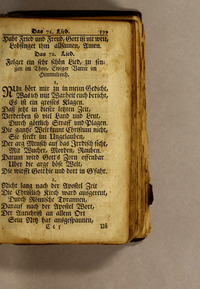 Das 72. Lied.
Habt Fried und Freud, Gott ist nit weit,
Lobsinget ihm allsamen, Amen.
Das 72. Lied.
Folget ein sehr schön Lied, zu sin-
gen im Thon, Ewiger Vatter im
Himmelreich.
1.
NUn hört mir zu in meim Gedicht,
Was ich mit Warheit euch bericht,
Es ist ein grosses Klagen.
Daß jetzt in dieser letzten Zeit,
Verderben so viel Land und Leut,
Durch göttlich Straff und Plagen.
Die gantze Welt kennt Christum nicht,
Sie steckt im Unglauben.
Der arg Mensch auf das Irrdisch sicht,
Mit Wucher, Morden, Rauben.
Darum wird Gott's Zorn offenbar
Uber die arge böse Welt,
Die wiefft Gott die und dort in G'fahr.
2.
Nicht lang nach der Apostel Zeit
Die Christlich Kirch ward ausgereut,
Durch Römische Tyrannen,
Darauf nach der Apostel Wort,
Der Antichrist an allem Ort
Sein Netz hat ausgespannen,